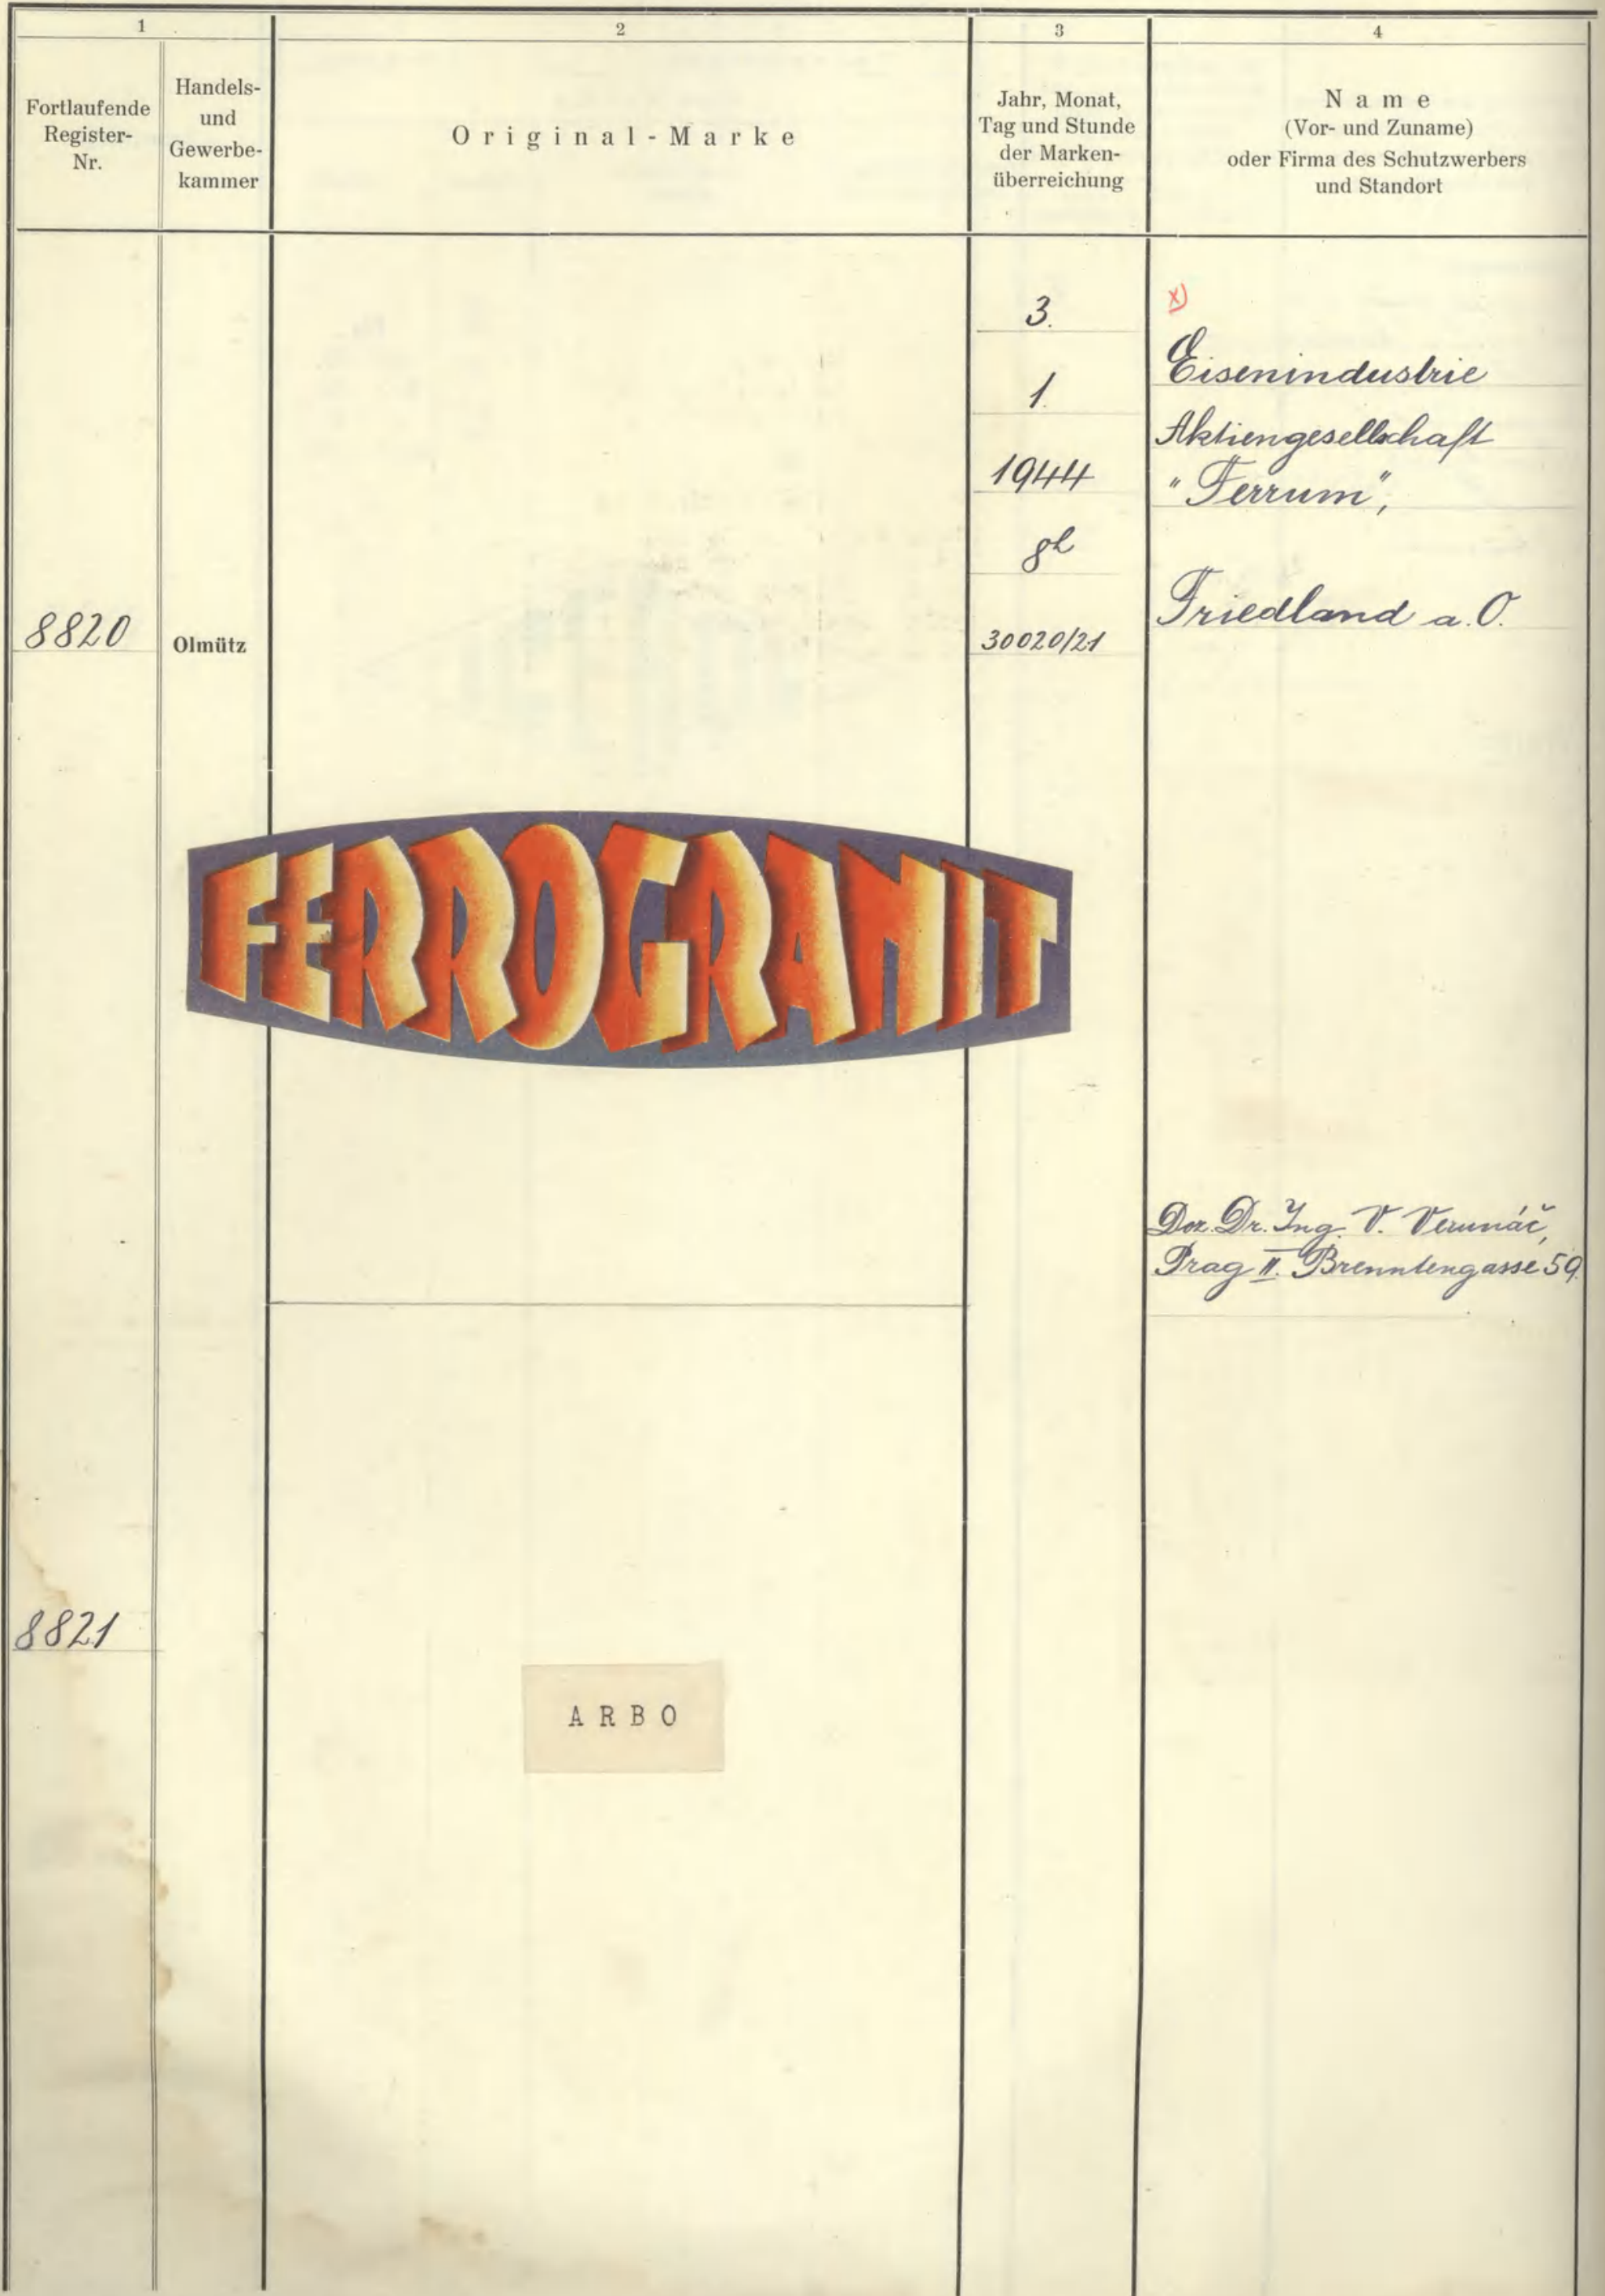 1
2
3
4
Fortlaufende
Register-
Nr.
Handels-
und
Gewerbe-
kammer
Original-Marke
Jahr, Monat,
Tag und Stunde
der Marken-
überreichung
Name
(Vor- und Zuname)
oder Firma des Schutzwerbers
und Standort
8820
Olmütz
3.
1.
1944
8h
30020/21
x)
Eisenindustrie
Aktiengesellschaft
"Ferrum",
Friedland a. O.
FERROGRANIT
Doz. Dr. Ing. V.
Prag II. Brenntengasse 59.
8821
ARBO